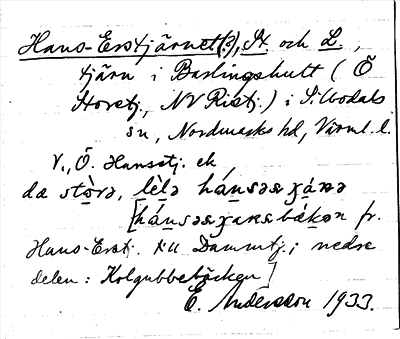 Hans-Erstjärnet(?), St. och L.,
tjärn i Barlingshult (Ö
Horrtj., NV Ristj.) i Silbodals
sn, Nordmarks hd, Värml. l.
V., Ö. Hanstj. ek
da stòrə, lèlə hánsəsjánə
[hánsəsjanebákən fr.
Hans-Erst. till Dammtj.; nedre
delen: Kolgubbebäcken]
E. Andersson 1933.